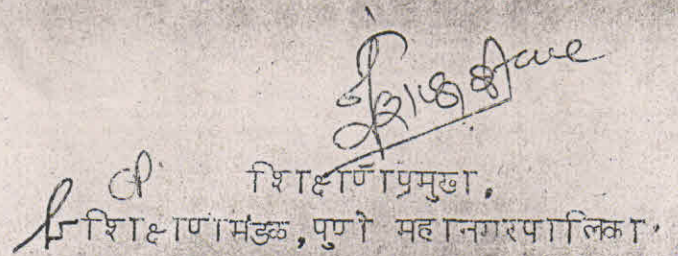 शिक्षणप्रमुख,
शिक्षणमंडळ, पुणे महानगरपालिका.